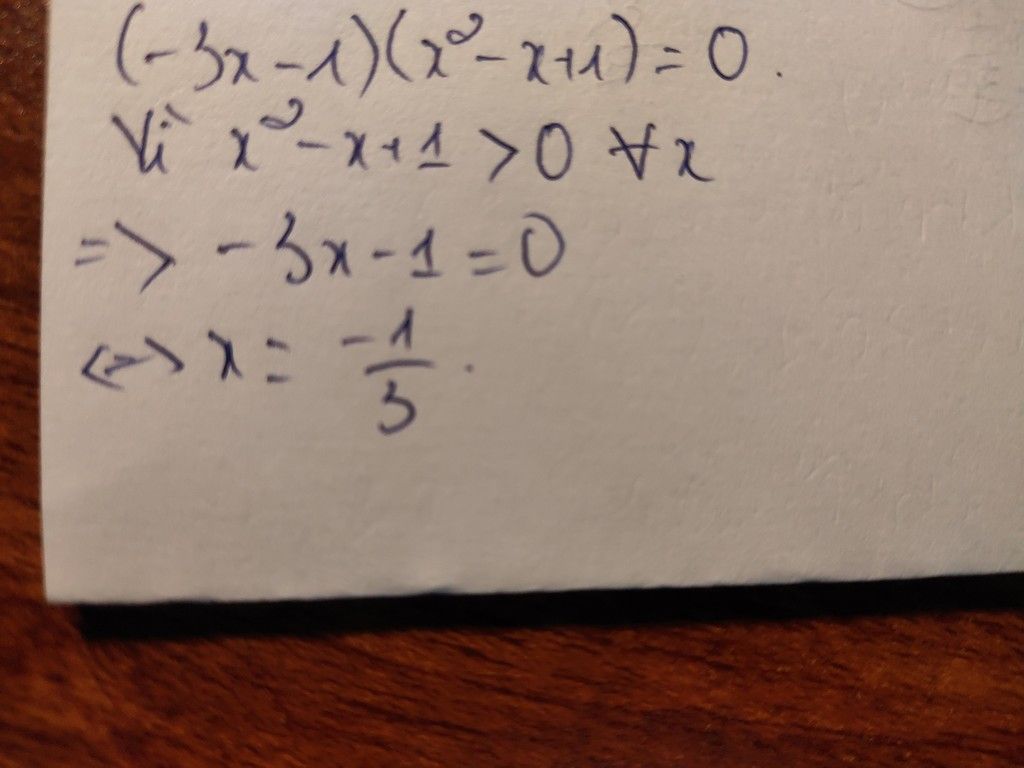 (-3x-1)(x²-x+1)=0.
Vì x²-x+1>0 ∀x
=> -3x-1=0
<=> x= -1/3.